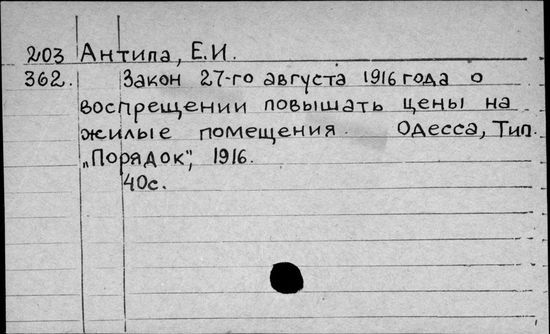 203 Антипа, Е.И.
362. Закон 27-го августа 1916 года о
воспрещении повышать цены на
жилые помещения. Одесса, Тип.
„Порядок", 1916.
40с.